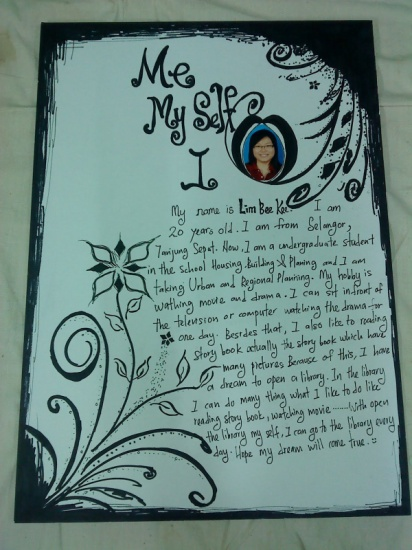 Me
My Self
I
My name is Lim Bee Kee. I am
20 years old. I am from Selangor,
Tanjung Sepat. Now, I am a undergraduate student
in the school Housing, Building & Planing and I am
taking Urban and Regional Planning. My hobby is
wathing movie and drama. I can sit in front of
the telension or computer watching the drama for
one day. Besides that, I also like to reading
story book actually the story book which have
many pictures. Because of this, I have
a dream to open a library. In the library
I can do many thing what I like to do like
reading story book, watching movie ........ With open
the library my self, I can go to the library every
day. Hope my dream will come true. :)